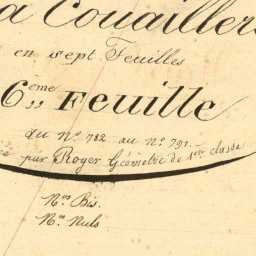 a Couailler
en sept Feuilles
6ème Feuille
du No. 782. au No. 791.
par Royer Géomètre de 1ère classe
Nos. Bis.
Nos. Nuls.